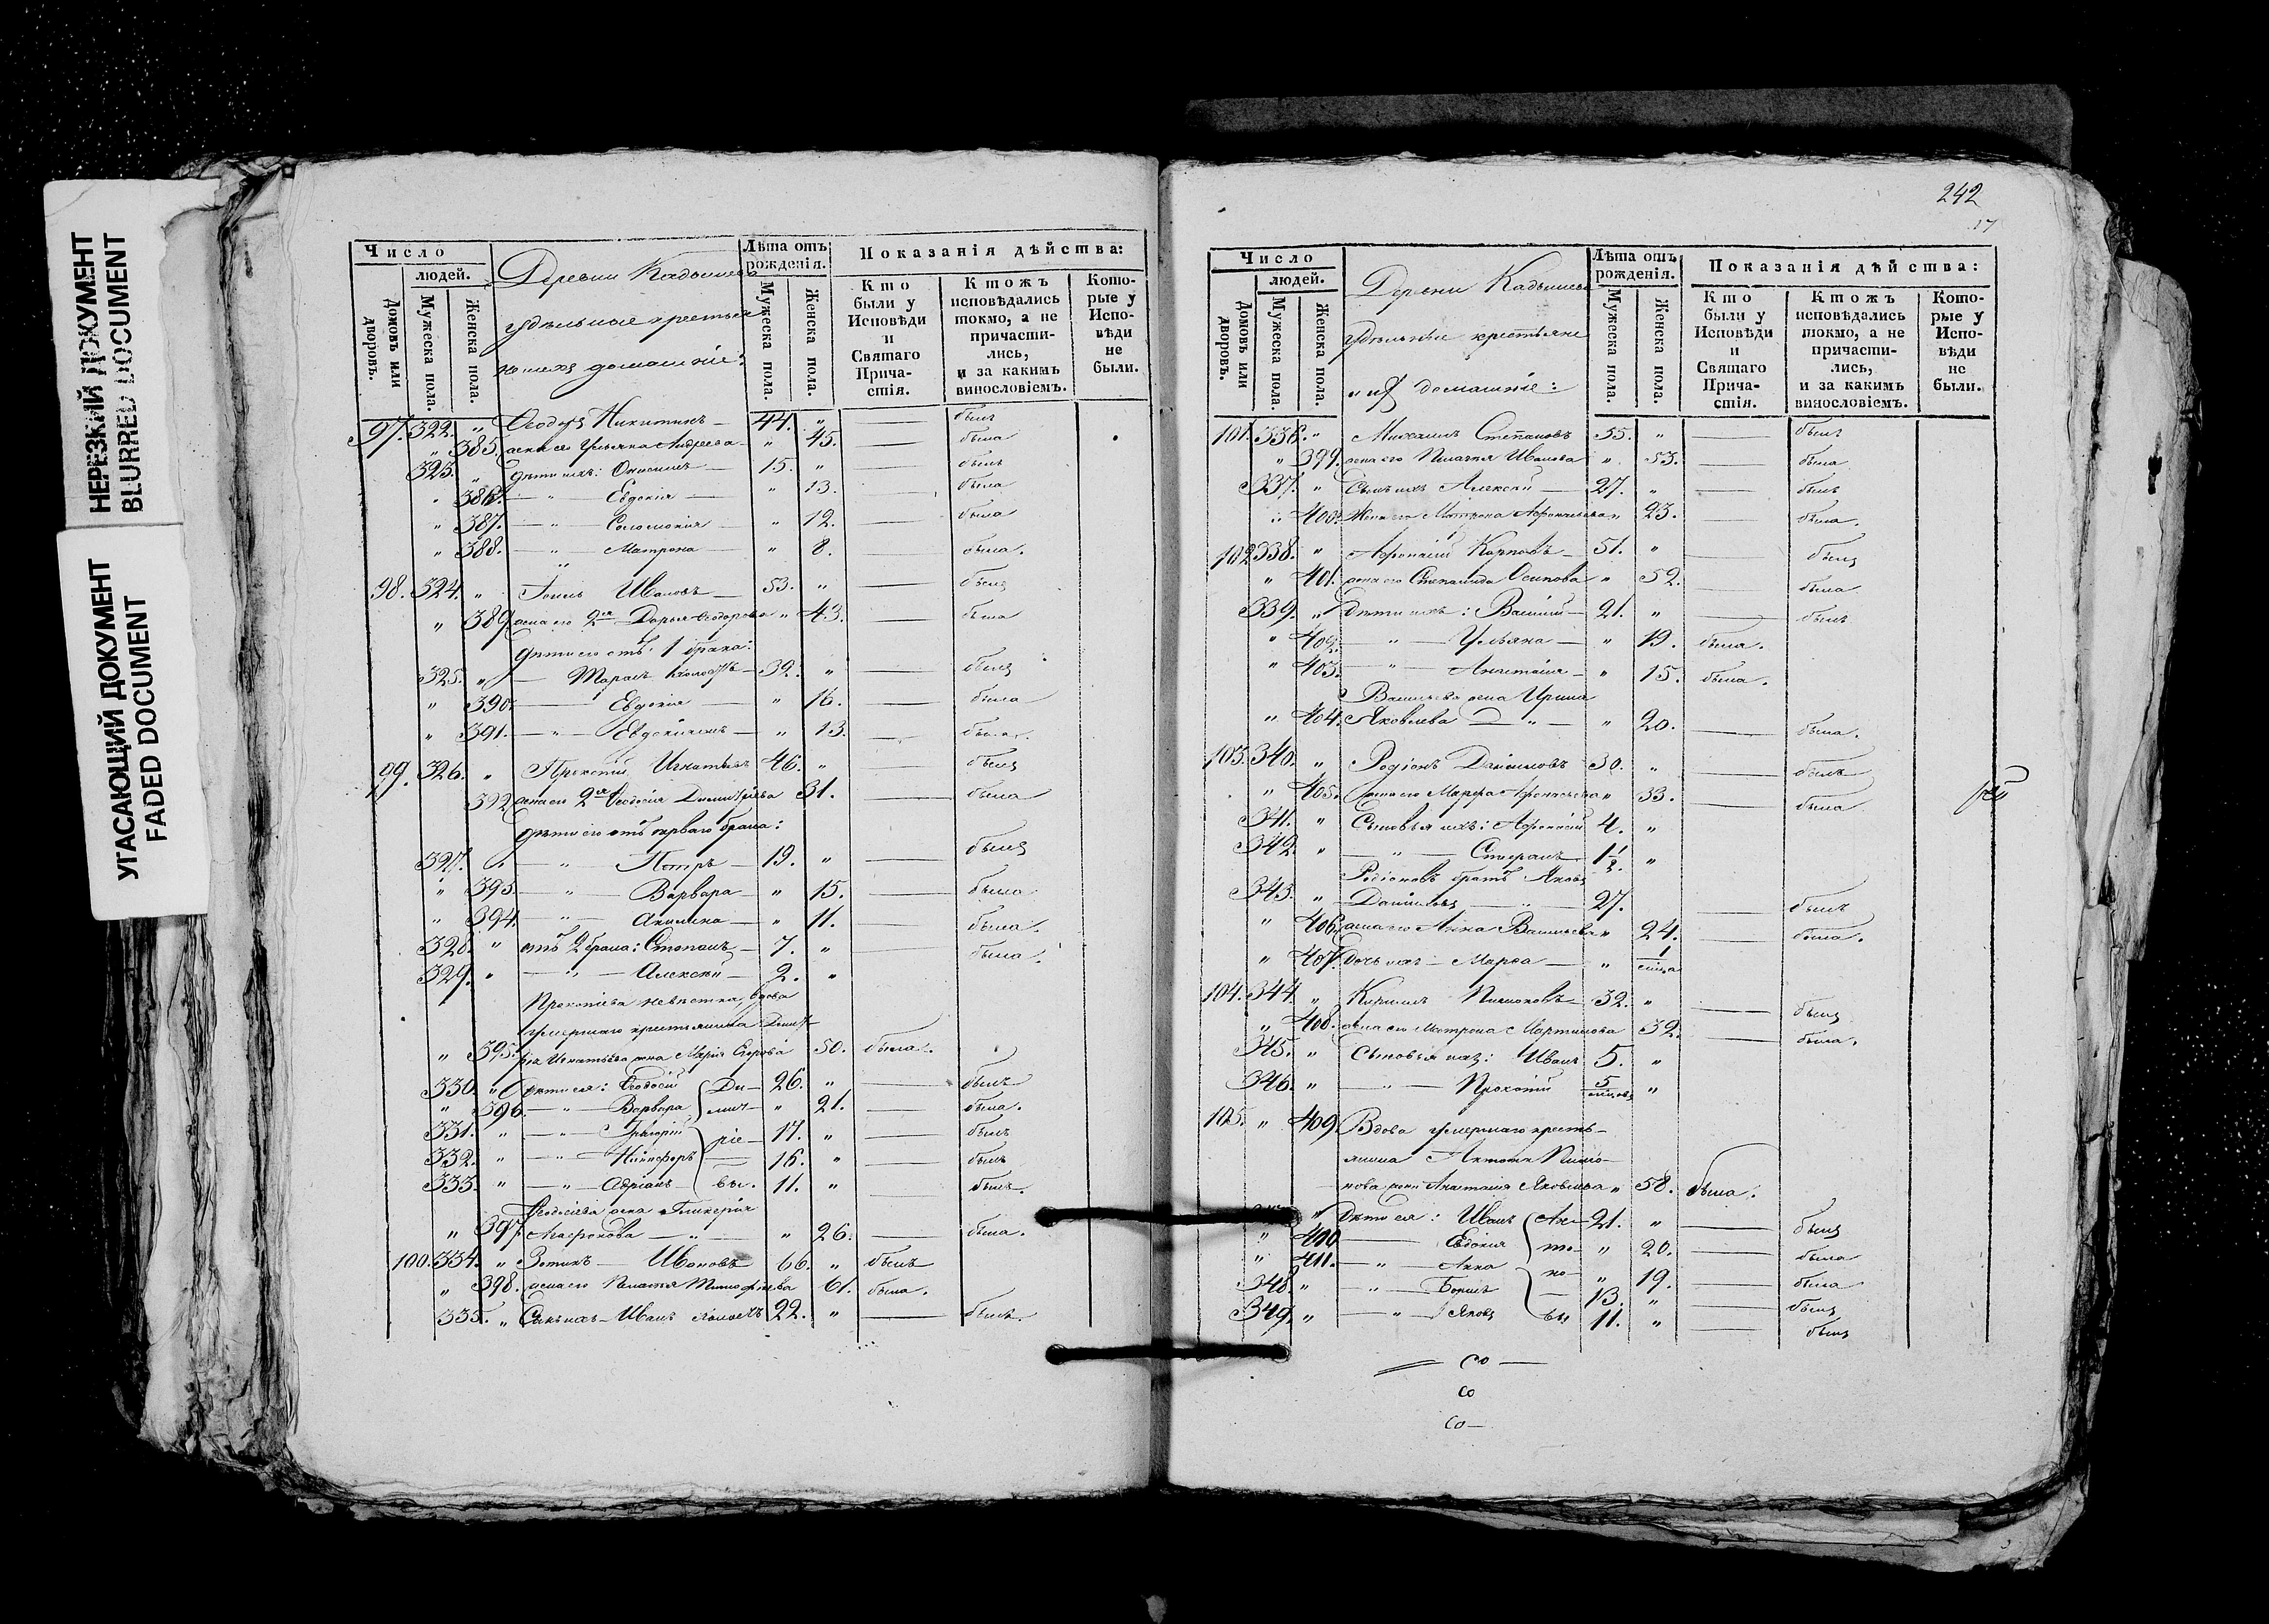 НЕРЕЗКИЙ ДОКУМЕНТ
BLURRED DOCUMENT
УГАСАЮЩИЙ ДОКУМЕНТ
FADED DOCUMENT
Число
людей.
Домовъ или дворовъ.
Мужеска пола.
Женска пола.
Деревни Кадышева
удѣльные крестьяне
и ихъ домашніе:
Лѣта отъ рожденія.
Мужеска пола.
Женска пола.
Показанія дѣйства:
Кто были у Исповѣди и Святаго Причастія.
Ктожъ исповѣдались токмо, а не причастились, и за какимъ винословіемъ.
Которые у Исповѣди не были.
97. 322. " Ѳеодоръ Никитинъ — 44. " — былъ
" 385. жена его Ульяна Андреева — " 45. — была
323. " дѣти ихъ: Онисимъ — 15. " — былъ
" 386. — " — Евдокія — " 13. — была
" 387. — " — Соломонія — " 12. — была
" 388. — " — Матрона — " 8. — была.
98. 324. " Ивановъ — 53. " — былъ
" 389. жена его 2я Дарья Ѳеодорова " 43. — была
дѣти его отъ 1 брака:
325. " — Тарасъ холостъ — 32. " — былъ
" 390. — Евдокія — " 16. — была
" 391. — " — — " 13. — была.
99. 326. " Прокопій Игнатьевъ 46. " — былъ
392. жена его 2я Ѳеодосія Димитріева 31. — была
дѣти его отъ перваго брака:
327. " — " — Петръ — 19. " — былъ
" 393. — " — Варвара — " 15. — была
" 394. — " — Акилина — " 11. — была.
328. " отъ 2 брака: Степанъ — 7. " — была.
329. " — " — Алексѣй — 2. "
Прокопіева невѣстка, вдова
умершаго крестьянина Димит-
" 395. рія Игнатьева жена Марія Егорова 50. была.
330. " Дѣти ея: Ѳеодосій Ди- 26. " — былъ
" 396. — " — Варвара мит- " 21. — была.
331. " — " — Григорій ріе- 17. " — былъ
332. " — " — Никифоръ — 16. " — былъ
333. " — " — Адріанъ — вы. 11. " былъ.
Ѳеодосіева жена Гликерія
" 397. Агафонова — " — " 26. — была.
100. 334. " Зотикъ — Ивановъ 66. " былъ
" 398. жена его Пелагея Тимофѣева 61. была.
335. " Сынъ ихъ — Иванъ холостъ 22. " — былъ.
242
17
Число
людей.
Домовъ или дворовъ.
Мужеска пола.
Женска пола.
Деревни Кадышева
удѣльные крестьяне
и ихъ домашніе:
Лѣта отъ рожденія.
Мужеска пола.
Женска пола.
Показанія дѣйства:
Кто были у Исповѣди и Святаго Причастія.
Ктожъ исповѣдались токмо, а не причастились, и за какимъ винословіемъ.
Которые у Исповѣди не были.
101. 336. " Михаилъ Степановъ 55. " — былъ
" 399. жена его Пелагея Иванова " 53. — была
337. " Сынъ ихъ Алексѣй — 27. " — былъ
" 400. Жена его Матрона Афонасьева " 23. — была.
102. 338. " Афонасій Карповъ — 51. " — былъ
" 401. жена его Степанида Осипова " 52. — была
339. " Дѣти ихъ: Василій — 21. " — былъ
" 402. — " — Ульяна — " 19. была.
" 403. — " — Анастасія — " 15. была.
Васильева жена Ирина
" 404. Яковлева — " — " 20. — была.
103. 340. " Родіонъ Даниловъ 30. " — былъ
" 405. Жена его Марѳа Афонасьева " 33. — была
341. " Сыновья ихъ: Афонасій 4. "
342. " — " — Стефанъ 1½. "
Родіоновъ братъ Яковъ
343. " Даниловъ — " — 27. — былъ
" 406. жена его Анна Васильева " 24. — была.
" 407. дочь ихъ — Марѳа — " 1 мѣсяца
104. 344. " Кириллъ Пимоновъ 32. " — былъ
" 408. жена его Матрона Мартинова 32. — была.
345. " Сыновья ихъ: Иванъ 5. "
346. " — " — Прокопій 5 мѣсяцовъ "
105. " 409. Вдова умершаго кресть-
янина Антона Пимо-
нова жена Анастасія Яковлева " 58. была.
" Дѣти ея: Иванъ Ан- 21. " — былъ
" 410. — Евдокія то- " 20. — была
" 411. — " — Анна но- " 19. — была
348. " — " — Борисъ — 13. " — былъ
349. " — " — Яковъ вы 11. " — былъ